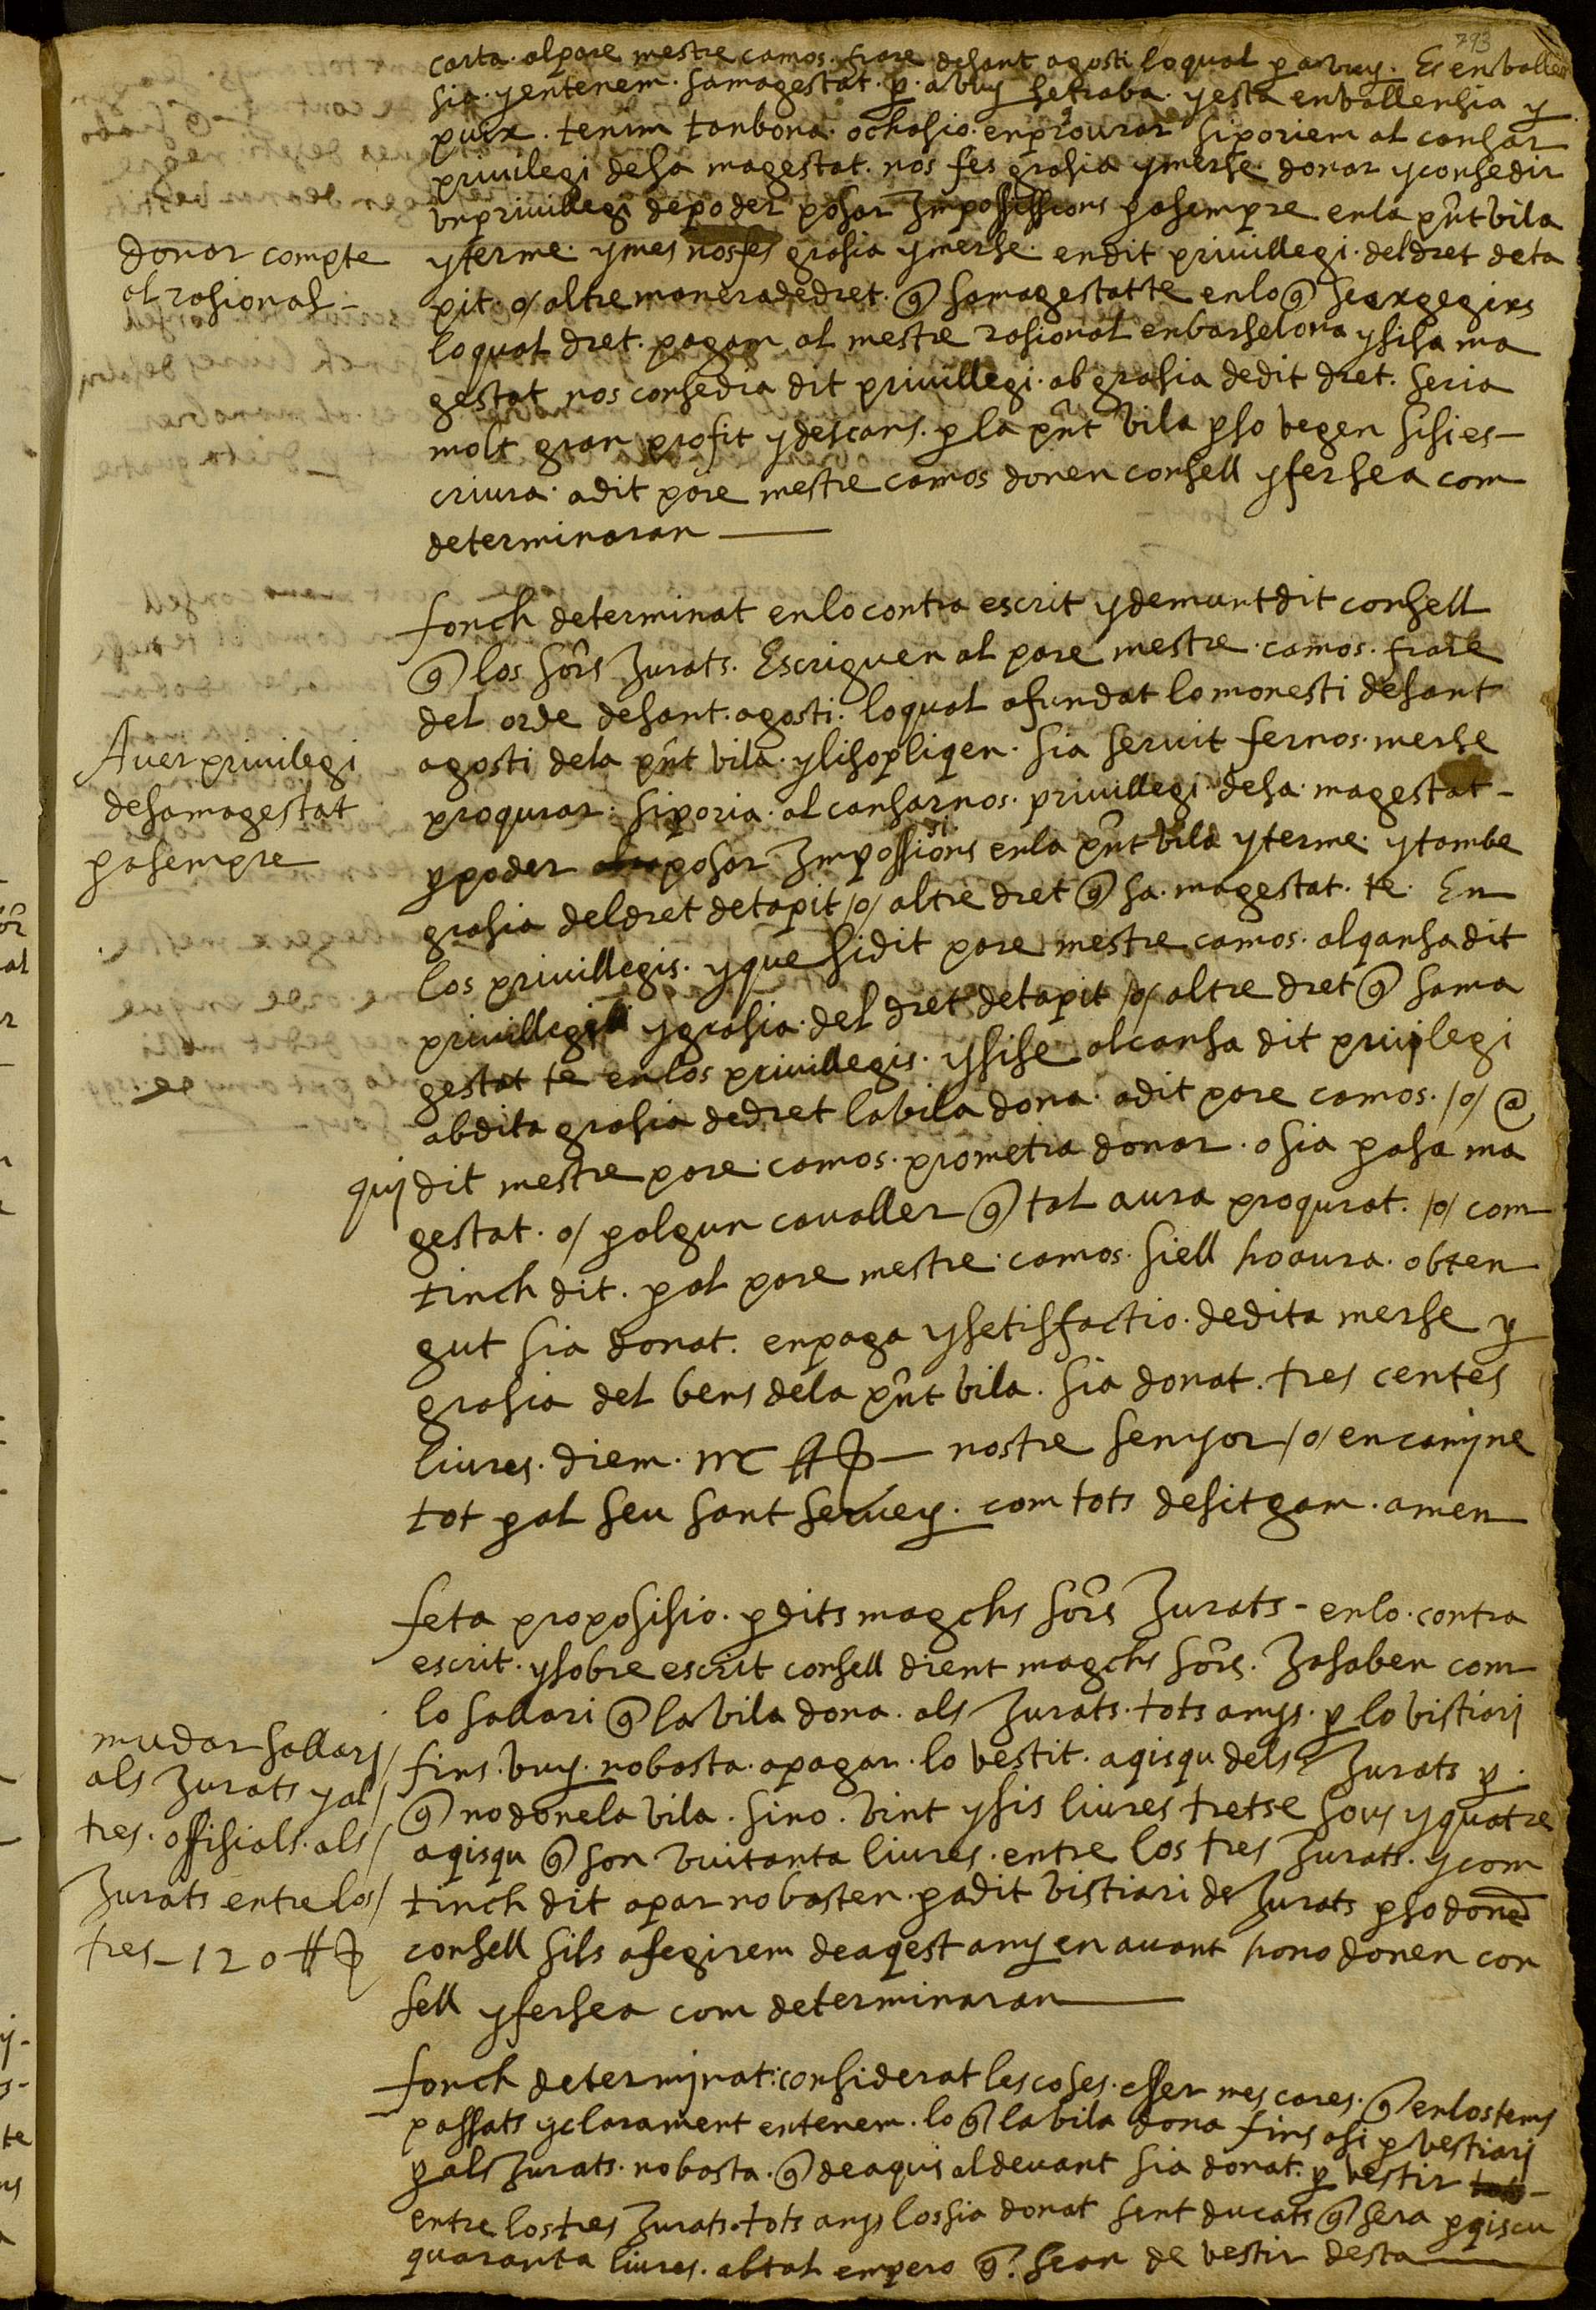 793
carta. al pare mestre camos. frare de sant agosti lo qual p avuy. Es en vallen
sia. y entenem. sa magestat. p. avuy se troba. y esta en vallensia y
puix. tenim tan bona. ochasio. en prourar si poriem al cansar
privilegi de sa magestat. nos fes grasia y merse. donar y consedir
un privillegi de poder posar Impossissions pa sempre en la pñt vila
y terme. y mes nos fes grasia y merse. en dit privillegi. del dret de ta
pit. o/ altre manera de dret. q sa magestat te en lo q
donar compte
al rasional -
lo qual dret. pagam al mestre rasional en barselona y si sa ma
gestat nos consedia dit privillegi. ab grasia de dit dret. seria
molt gran profit y descans. p la pñt vila p so vegen si si es-
criura. a dit pare mestre camos donen consell y fer sea com
determinaran
fonch determinat en lo contra escrit y demunt dit consell
q los sors Jurats. Escriguen al pare mestre. camos. frare
del orde de sant. agosti. lo qual a fundat lo monesti de sant
agosti de la pñt vila. y li sopliqen. sia servit fer nos. merse
Aver privilegi
de sa magestat
pa sempre
proqurar. si poria. al cansar nos. privillegi de sa. magestat -
y poder posar Impossisions en la pñt vila y terme. y tambe
grasia del dret de tapit /o/ altre dret q sa. magestat. te. En
los privillegis. y que si dit pare mestre camos. alqansa dit
privillegi y grasia. del dret de tapit /o/ altre dret q sa ma
gestat te en los privillegis. y si se alcansa dit privilegi
ab dita grasia de dret la vila dona. a dit pare camos. /o/ @
qui dit mestre pare. camos. prometra donar. o sia pa sa ma
gestat. o/ p algun cavaller q tal aura proqurat. /o/ com
tinch dit. p al pare mestre. camos. si ell ho aura. obten
gut sia donat. en paga y setisfactio. de dita merse y
grasia del bens de la pñt vila. sia donat. tres centes
liures. diem. nostre senyor /o/ encamine
tot p al seu sant servey. com tots desitgam. amen
feta proposisio. p dits magchs sors Jurats - en lo. contra
escrit. y sobre escrit consell dient magchs sors. Ja saben com
lo sallari q la vila dona. als Jurats. tots anys. p lo bistiari
mudar sallary /
als Jurats y al /
tres. offisials. als /
Jurats entre los /
tres - 120 ₶
fins. vuy. no basta. a pagar. lo vestit. a qisqu dels Jurats p.
q no done la vila. sino. vint y sis liures tretse sous y quatre
a qisqu q son vuitanta liures. entre los tres Jurats. y com
tinch dit a par no basten. p a dit bistiari de Jurats p so donen
consell si ls afegirem de aqest any en avant ho no donen con
sell y fer sea com determinaran
fonch determinat. considerat les coses. esser mes cares. q en los tems
passats y clarament entenem. lo q la vila dona fins asi p vestiari
p als Jurats. no basta. q de aqui al devant sia donat. p vestir
entre los tres Jurats. tots anys los sia donat sent ducats q sera p qiscu
quaranta liures. ab tal empero q. sean de vestir desta